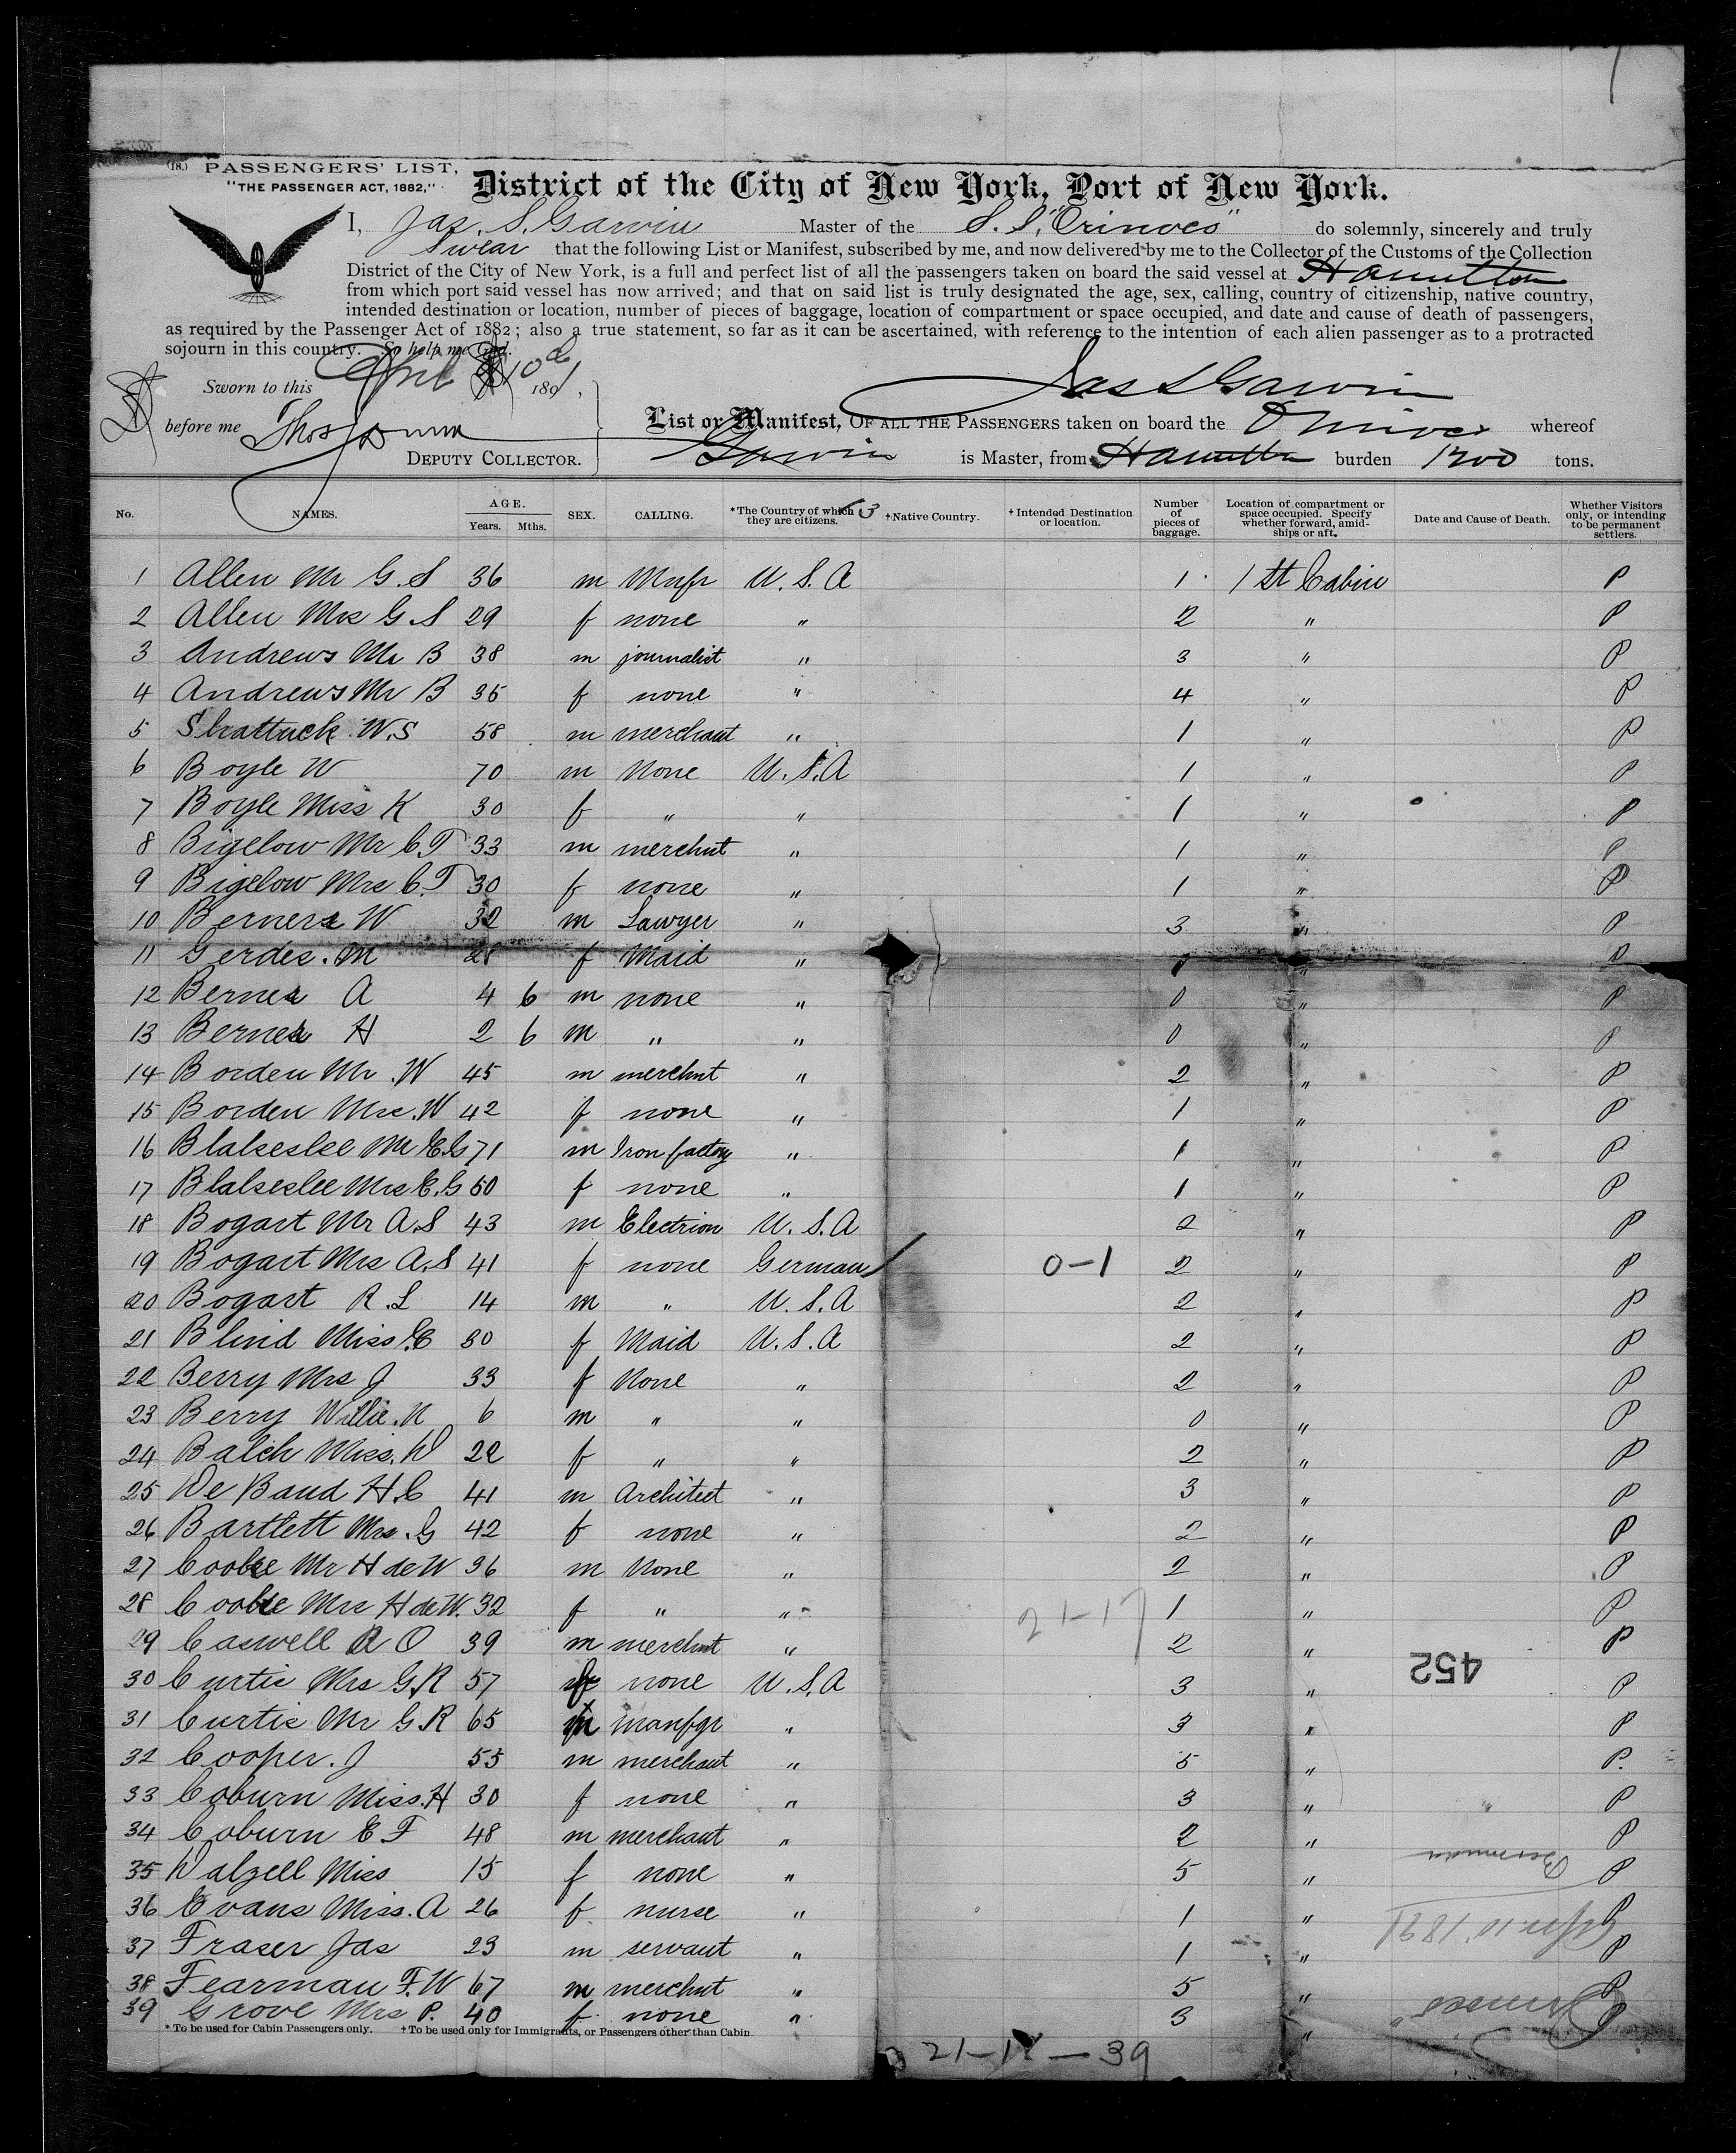 (18.) PASSENGERS' LIST,
"THE PASSENGER ACT, 1882,"
District of the City of New York, Port of New York.
I, Jas. S. Garvin Master of the S.S. "Orinoco" do solemnly, sincerely and truly
Swear that the following List or Manifest, subscribed by me, and now delivered by me to the Collector of the Customs of the Collection
District of the City of New York, is a full and perfect list of all the passengers taken on board the said vessel at Hamilton
from which port said vessel has now arrived; and that on said list is truly designated the age, sex, calling, country of citizenship, native country,
intended destination or location, number of pieces of baggage, location of compartment or space occupied, and date and cause of death of passengers,
as required by the Passenger Act of 1882; also a true statement, so far as it can be ascertained, with reference to the intention of each alien passenger as to a protracted
sojourn in this country. So help me God.
Sworn to this April 10th 1891,
Jas S Garvin
before me Thos
DEPUTY COLLECTOR.
List or Manifest, OF ALL THE PASSENGERS taken on board the Orinoco whereof
Garvin is Master, from Hamilton burden 1200 tons.
No. NAMES. AGE. Years. Mths. SEX. CALLING. *The Country of which they are citizens. 3 †Native Country. †Intended Destination or location. Number of pieces of baggage. Location of compartment or space occupied. Specify whether forward, amid-ships or aft. Date and Cause of Death. Whether Visitors only, or intending to be permanent settlers.
1 Allen Mr G. S 36 m Mnfr U. S. A 1 1 St Cabin P
2 Allen Mrs G. S 29 f none " 2 " P
3 Andrews Mr B 38 m journalist " 3 " P
4 Andrews Mr B 35 f none " 4 " P
5 Shattuck W. S 58 m merchant " 1 " P
6 Boyle W 70 m None U. S. A 1 " P
7 Boyle Miss K 30 f " " 1 " P
8 Bigelow Mr C. T 33 m merchnt " 1 " P
9 Bigelow Mrs C. T 30 f none " 1 " P
10 Berners W 32 m Lawyer " 3 " P
11 Gerdes. M 28 f Maid " 1 " P
12 Berner A 4 6 m none " 0 " P
13 Berner H 2 6 m " " 0 " P
14 Borden Mr. W 45 m merchnt " 2 " P
15 Borden Mrs. W 42 f none " 1 " P
16 Blakeslee Mr E. G 71 m Iron factory " 1 " P
17 Blakeslee Mrs E. G 60 f none " 1 " P
18 Bogart Mr A. S 43 m Electrion U. S. A 2 " P
19 Bogart Mrs A. S 41 f none German 0-1 2 " P
20 Bogart R. L 14 m " U. S. A 2 " P
21 Blind Miss. E 30 f Maid U. S. A 2 " P
22 Berry Mrs J 33 f None " 2 " P
23 Berry Willie. N 6 m " " 0 " P
24 Balch Miss. W 22 f " " 2 " P
25 De Baud H. C 41 m Architect " 3 " P
26 Bartlett Mrs. G 42 f none " 2 " P
27 Cooke Mr H de W 36 m None " 2 " P
28 Cooke Mrs H de W. 32 f " " 21-17 1 " P
29 Caswell R O 39 m merchnt " 2 " P
452
30 Curtis Mrs G. R 57 f none U. S. A 3 " P
31 Curtis Mr G. R 65 m manfgr " 3 " P
32 Cooper. J 55 m merchant " 5 " P.
33 Coburn Miss. H 30 f none " 3 " P
34 Coburn E F 48 m merchant " 2 " P
Bermuda
35 Dalzell Miss 15 f none " 5 " P
36 Evans Miss. A 26 f nurse " 1 " P
Apr 10" 1891
37 Fraser Jas 23 m servant " 1 " P
38 Fearman F. W 67 m merchnt " 5 " P
39 Grove Mrs P. 40 f none " 3 " P
* To be used for Cabin Passengers only. † To be used only for Immigrants, or Passengers other than Cabin.
21-18-39